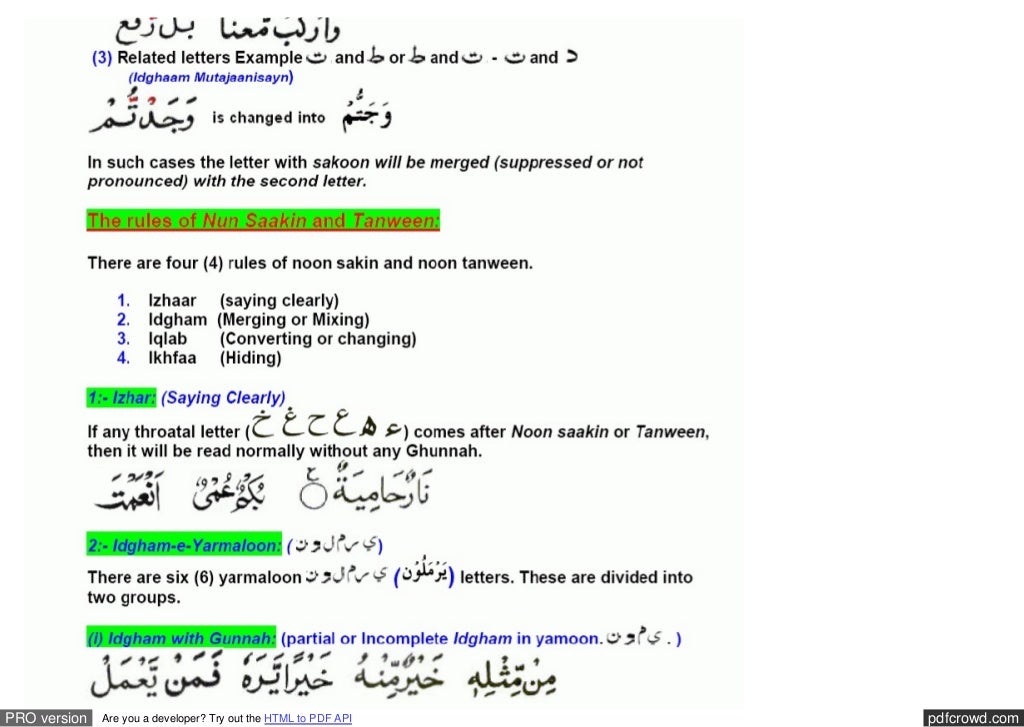 وارکب معنا بل رفع
(3) Related letters Example ت and ط or ط and ت - ت and د
(Idghaam Mutajaanisayn)
وَجَدْتُّمْ is changed into وَجَتُّمْ
In such cases the letter with sakoon will be merged (suppressed or not
pronounced) with the second letter.
The rules of Nun Saakin and Tanween:
There are four (4) rules of noon sakin and noon tanween.
1. Izhaar (saying clearly)
2. Idgham (Merging or Mixing)
3. Iqlab (Converting or changing)
4. Ikhfaa (Hiding)
1:- Izhar: (Saying Clearly)
If any throatal letter (ء ه ع ح غ خ) comes after Noon saakin or Tanween,
then it will be read normally without any Ghunnah.
اَنْعَمْتَ بُكْمٌ عُمْیٌ نَارٌ حَامِيَةٌ
2:- Idgham-e-Yarmaloon: (ی ر م ل و ن)
There are six (6) yarmaloon ی ر م ل و ن (یَرْمَلُوْن) letters. These are divided into
two groups.
(i) Idgham with Gunnah: (partial or Incomplete Idgham in yamoon. ی م و ن . )
فَمَنْ يَّعْمَلْ خَيْرًا يَّرَهٗ خَيْرٌ مِّنْهُ مِنْ مِّثْلِهٖ
PRO version Are you a developer? Try out the HTML to PDF API pdfcrowd.com